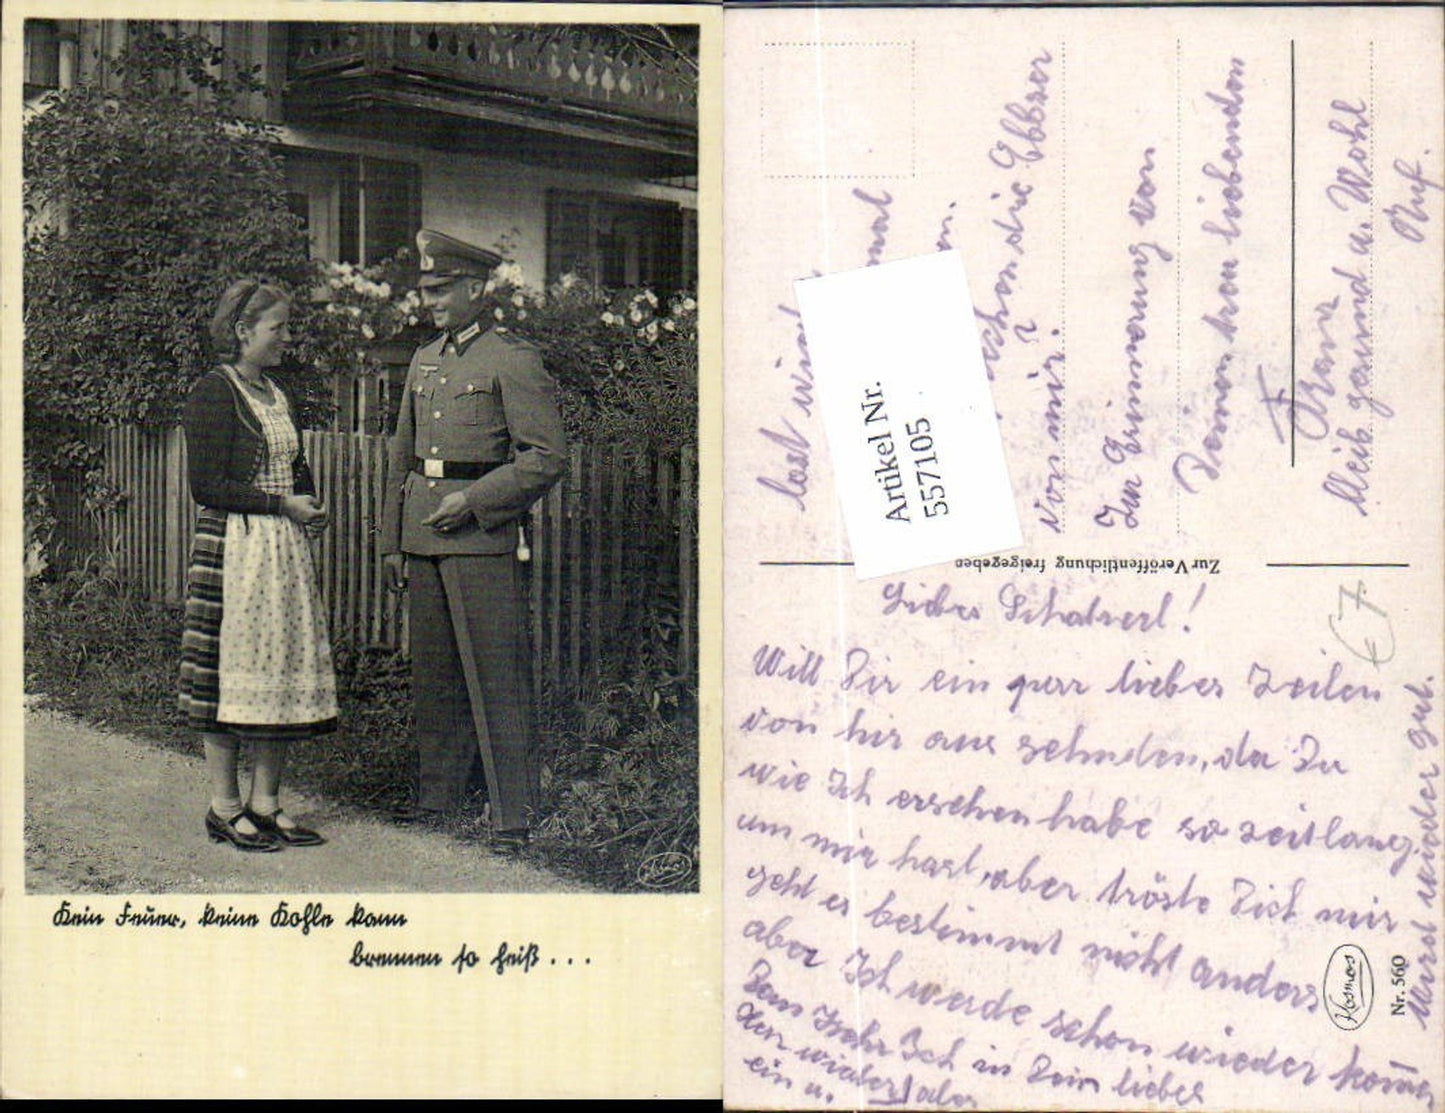 Kein Feuer, keine Kohle kann
brennen so heiß...
Kosmos
Artikel Nr.
557105
Zur Veröffentlichung freigegeben
Liebes Schatzerl!
Will Dir ein paar liebes Zeilen
von hir aus sehnden, da Du
wie Ich ersehen habe so zeitlang
um mir hast, aber tröste Dich mir
geht es bestimmt nicht anders
aber Ich werde schon wieder komen
Dan Ich in Dein liebes
wieder
ein u.
wird wieder gut.
last
mal
schon die
von mir.
Zur Erinnerung von
Deinen treu liebenden
Franz
bleib gesund u. Wohl
Auf.
€ 7
Kosmos
Nr. 560